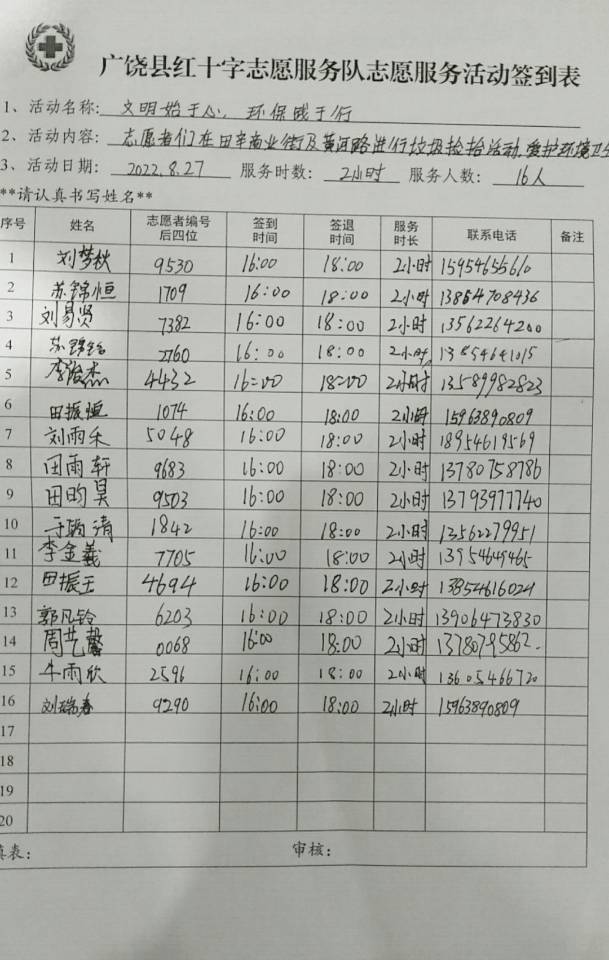 广饶县红十字志愿服务队志愿服务活动签到表
1、活动名称: 文明始于心,环保践于行
2、活动内容: 志愿者们在田宇商业街及黄河路进行垃圾捡拾活动,爱护环境卫生
3、活动日期: 2022.8.27 服务时数: 2小时 服务人数: 16人
**请认真书写姓名**
序号 姓名 志愿者编号后四位 签到时间 签退时间 服务时长 联系电话 备注
1 刘梦秋 9530 16:00 18:00 2小时 15954655610
2 苏锦恒 1709 16:00 18:00 2小时 13854708436
3 刘易贤 7382 16:00 18:00 2小时 13562264200
4 苏锦铭 2760 16:00 18:00 2小时 13854641015
5 李浩杰 4432 16:00 18:00 2小时 13589982823
6 田振恒 1074 16:00 18:00 2小时 15963890809
7 刘雨禾 5048 16:00 18:00 2小时 18954619569
8 田雨轩 9683 16:00 18:00 2小时 13780758786
9 田昀昊 9503 16:00 18:00 2小时 13793977740
10 清 1842 16:00 18:00 2小时 13562279951
11 李金羲 7705 16:00 18:00 2小时 13954649465
12 田振玉 4694 16:00 18:00 2小时 13854616024
13 郭凡铃 6203 16:00 18:00 2小时 13906473830
14 周艺馨 0068 16:00 18:00 2小时 13780795862.
15 牛雨欣 2596 16:00 18:00 2小时 13605466720
16 刘瑞春 9290 16:00 18:00 2小时 15963890809
17
18
19
20
填表: 审核: